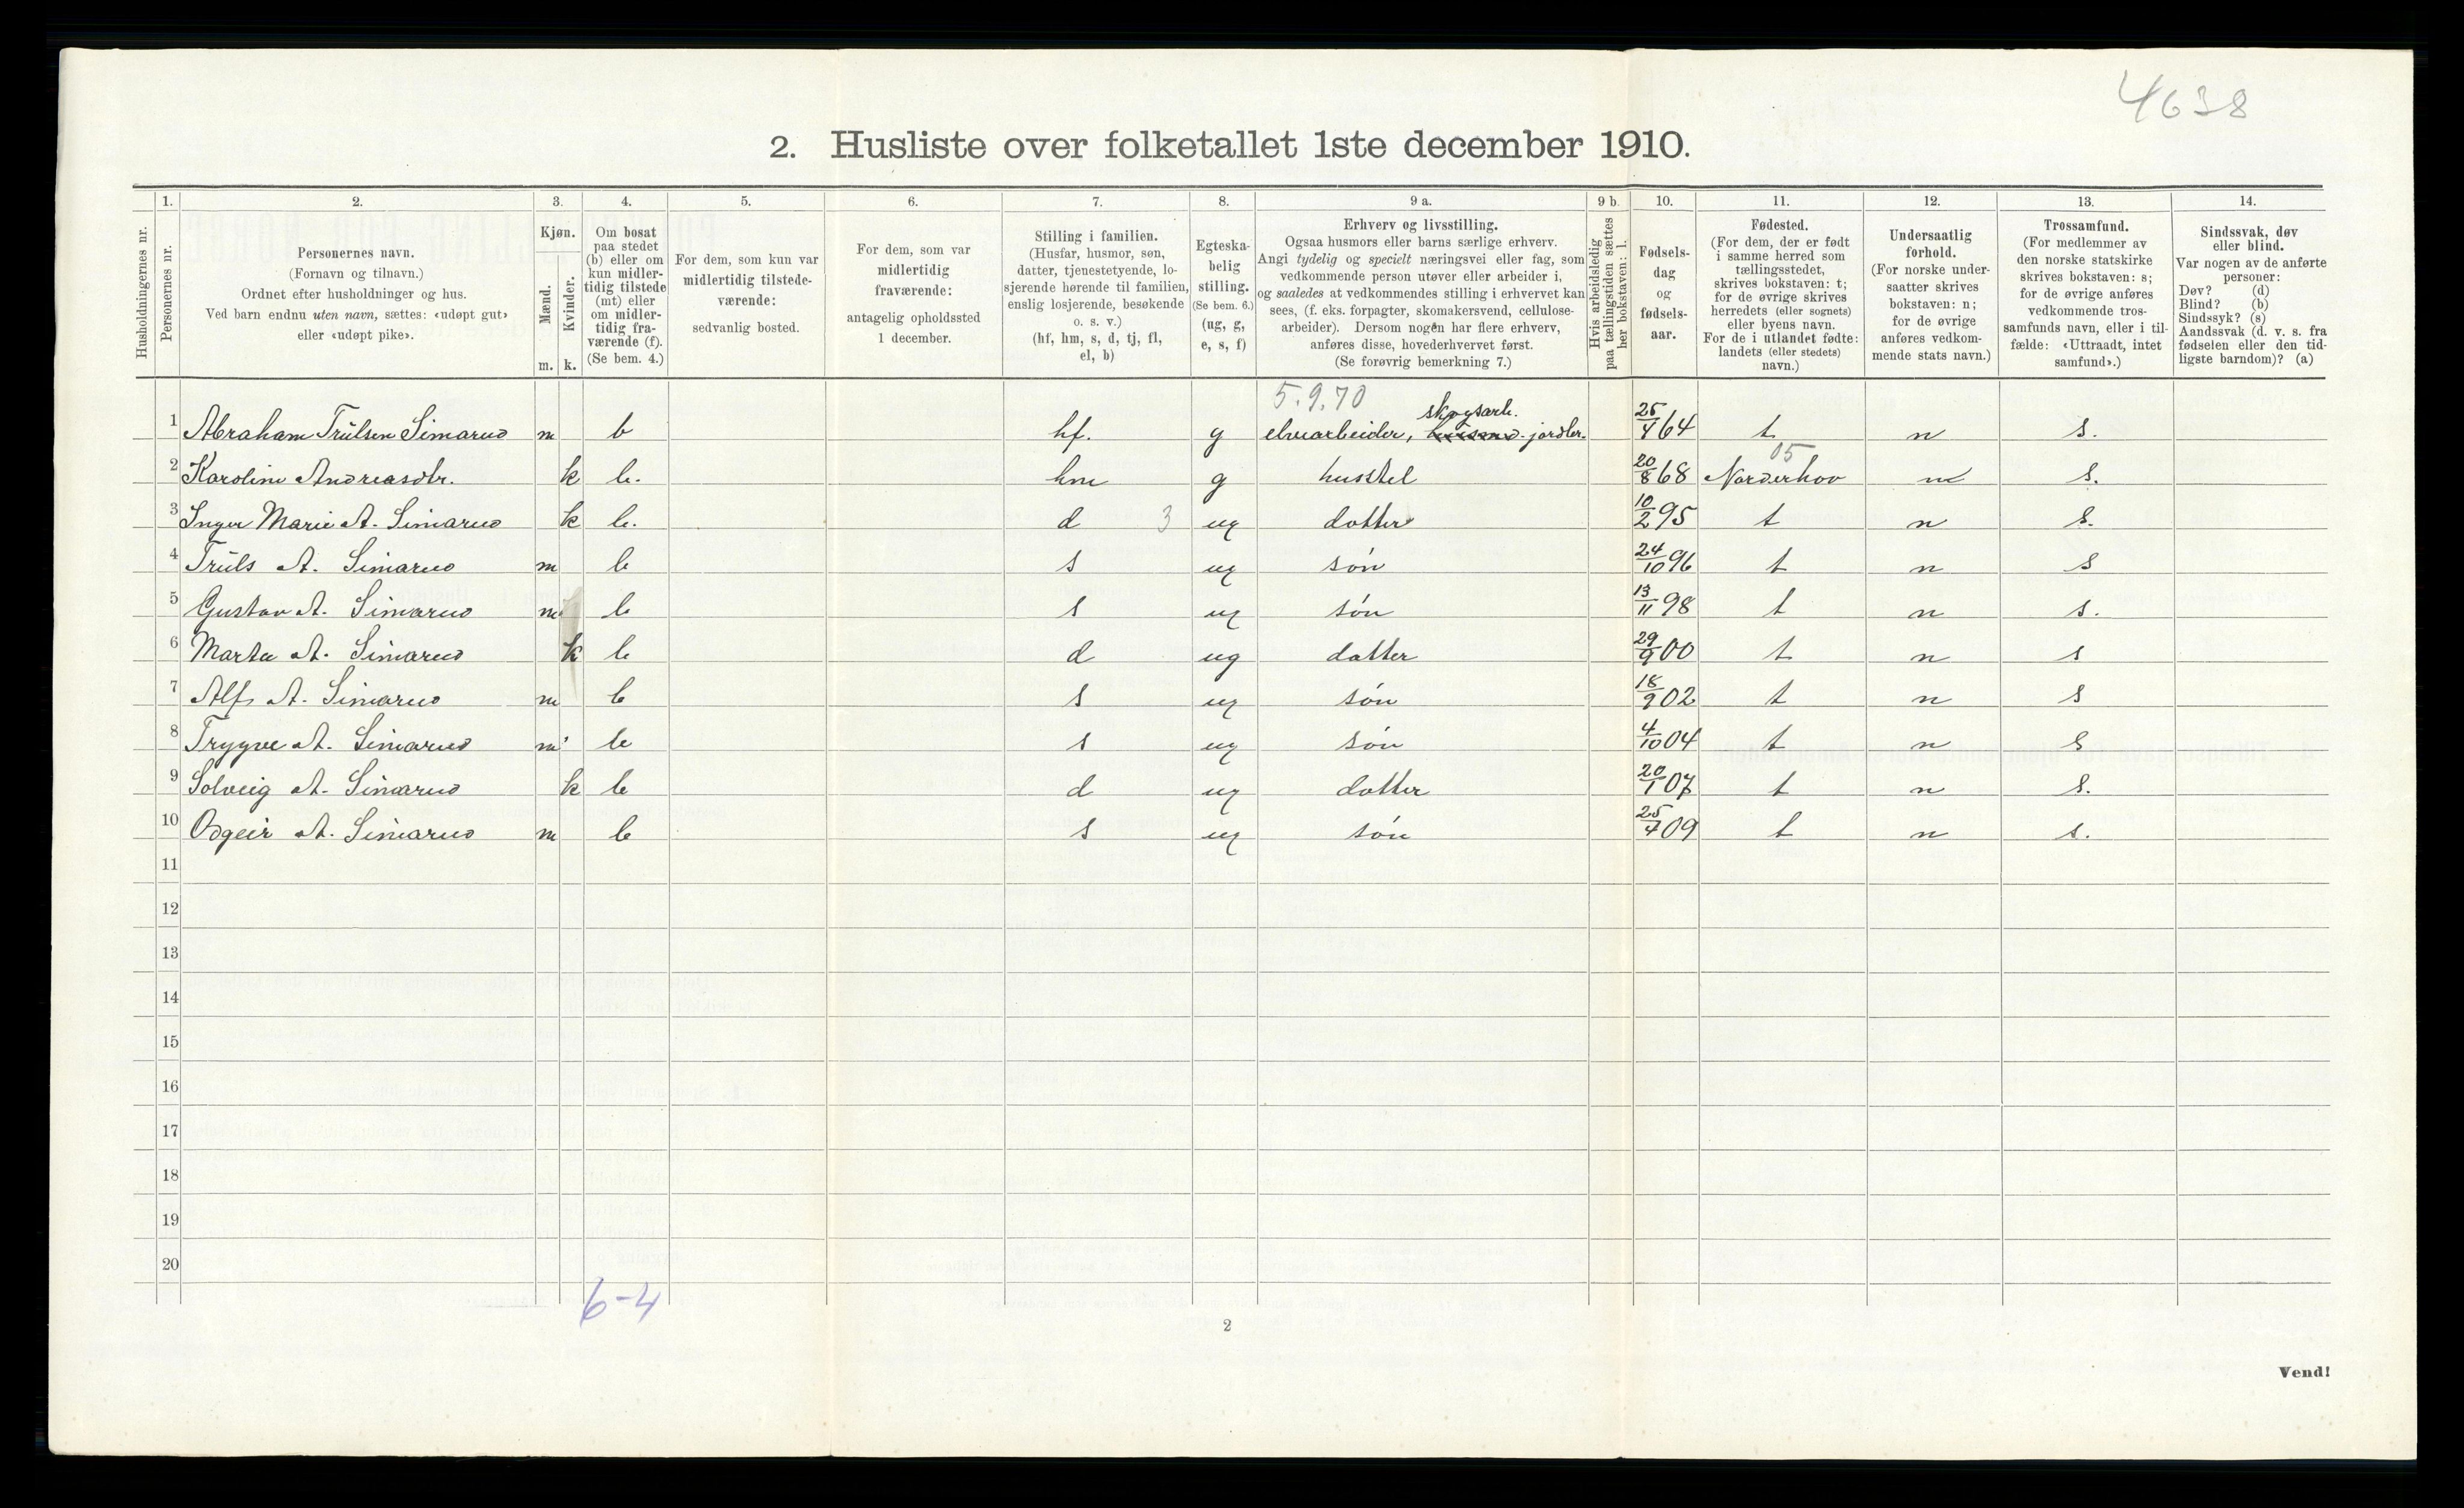 4638
2. Husliste over folketallet 1ste december 1910.
Husholdningernes nr.
1.
Personernes nr.
2.
Personernes navn.
(Fornavn og tilnavn.)
Ordnet efter husholdninger og hus.
Ved barn endnu uten navn, sættes: «udøpt gut»
eller «udøpt pike».
3.
Kjøn.
Mænd.
Kvinder.
m. k.
4.
Om bosat
paa stedet
(b) eller om
kun midler-
tidig tilstede
(mt) eller
om midler-
tidig fra-
værende (f).
(Se bem. 4.)
5.
For dem, som kun var
midlertidig tilstede-
værende:
sedvanlig bosted.
6.
For dem, som var
midlertidig
fraværende:
antagelig opholdssted
1 december.
7.
Stilling i familien.
(Husfar, husmor, søn,
datter, tjenestetyende, lo-
sjerende hørende til familien,
enslig losjerende, besøkende
o. s. v.)
(hf, hm, s, d, tj, fl,
el, b)
8.
Egteska-
belig
stilling.
(Se bem. 6.)
(ug, g,
e, s, f)
9 a.
Erhverv og livsstilling.
Ogsaa husmors eller barns særlige erhverv.
Angi tydelig og specielt næringsvei eller fag, som
vedkommende person utøver eller arbeider i,
og saaledes at vedkommendes stilling i erhvervet kan
sees, (f. eks. forpagter, skomakersvend, cellulose-
arbeider). Dersom nogen har flere erhverv,
anføres disse, hovederhvervet først.
(Se forøvrig bemerkning 7.)
9 b.
Hvis arbeidsledig
paa tællingstiden sættes
her bokstaven: l.
10.
Fødsels-
dag
og
fødsels-
aar.
11.
Fødested.
(For dem, der er født
i samme herred som
tællingsstedet,
skrives bokstaven: t;
for de øvrige skrives
herredets (eller sognets)
eller byens navn.
For de i utlandet fødte:
landets (eller stedets)
navn.)
12.
Undersaatlig
forhold.
(For norske under-
saatter skrives
bokstaven: n;
for de øvrige
anføres vedkom-
mende stats navn.)
13.
Trossamfund.
(For medlemmer av
den norske statskirke
skrives bokstaven: s;
for de øvrige anføres
vedkommende tros-
samfunds navn, eller i til-
fælde: «Uttraadt, intet
samfund».)
14.
Sindssvak, døv
eller blind.
Var nogen av de anførte
personer:
Døv? (d)
Blind? (b)
Sindssyk? (s)
Aandssvak (d. v. s. fra
fødselen eller den tid-
ligste barndom)? (a)
5.9.70
skogsarb.
1 Abraham Trulsen Simarud m b hf. g elvearbeider, husmd. jordbr. 25/4 64 t n s.
05
2 Karoline Andreasdtr. k b. hm g husstel 20/8 68 Norderhov n s.
3 Inger Marie A. Simarud k b. d 3 ug datter 10/2 95 t n s.
4 Truls A. Simarud m b s ug søn 24/10 96 t n s
5 Gustav A. Simarud m b s ug søn 13/11 98 t n s.
6 Marta A. Simarud k b d ug datter 29/9 00 t n s
7 Alf A. Simarud m b s ug søn 18/9 02 t n s
8 Trygve A. Simarud m b s ug søn 4/10 04 t n s
9 Solveig A. Simarud k b d ug datter 20/1 07 t n s.
10 Odgeir A. Simarud m b s ug søn 25/4 09 t n s.
11
12
13
14
15
16
17
18
19
20
6-4
2
Vend!